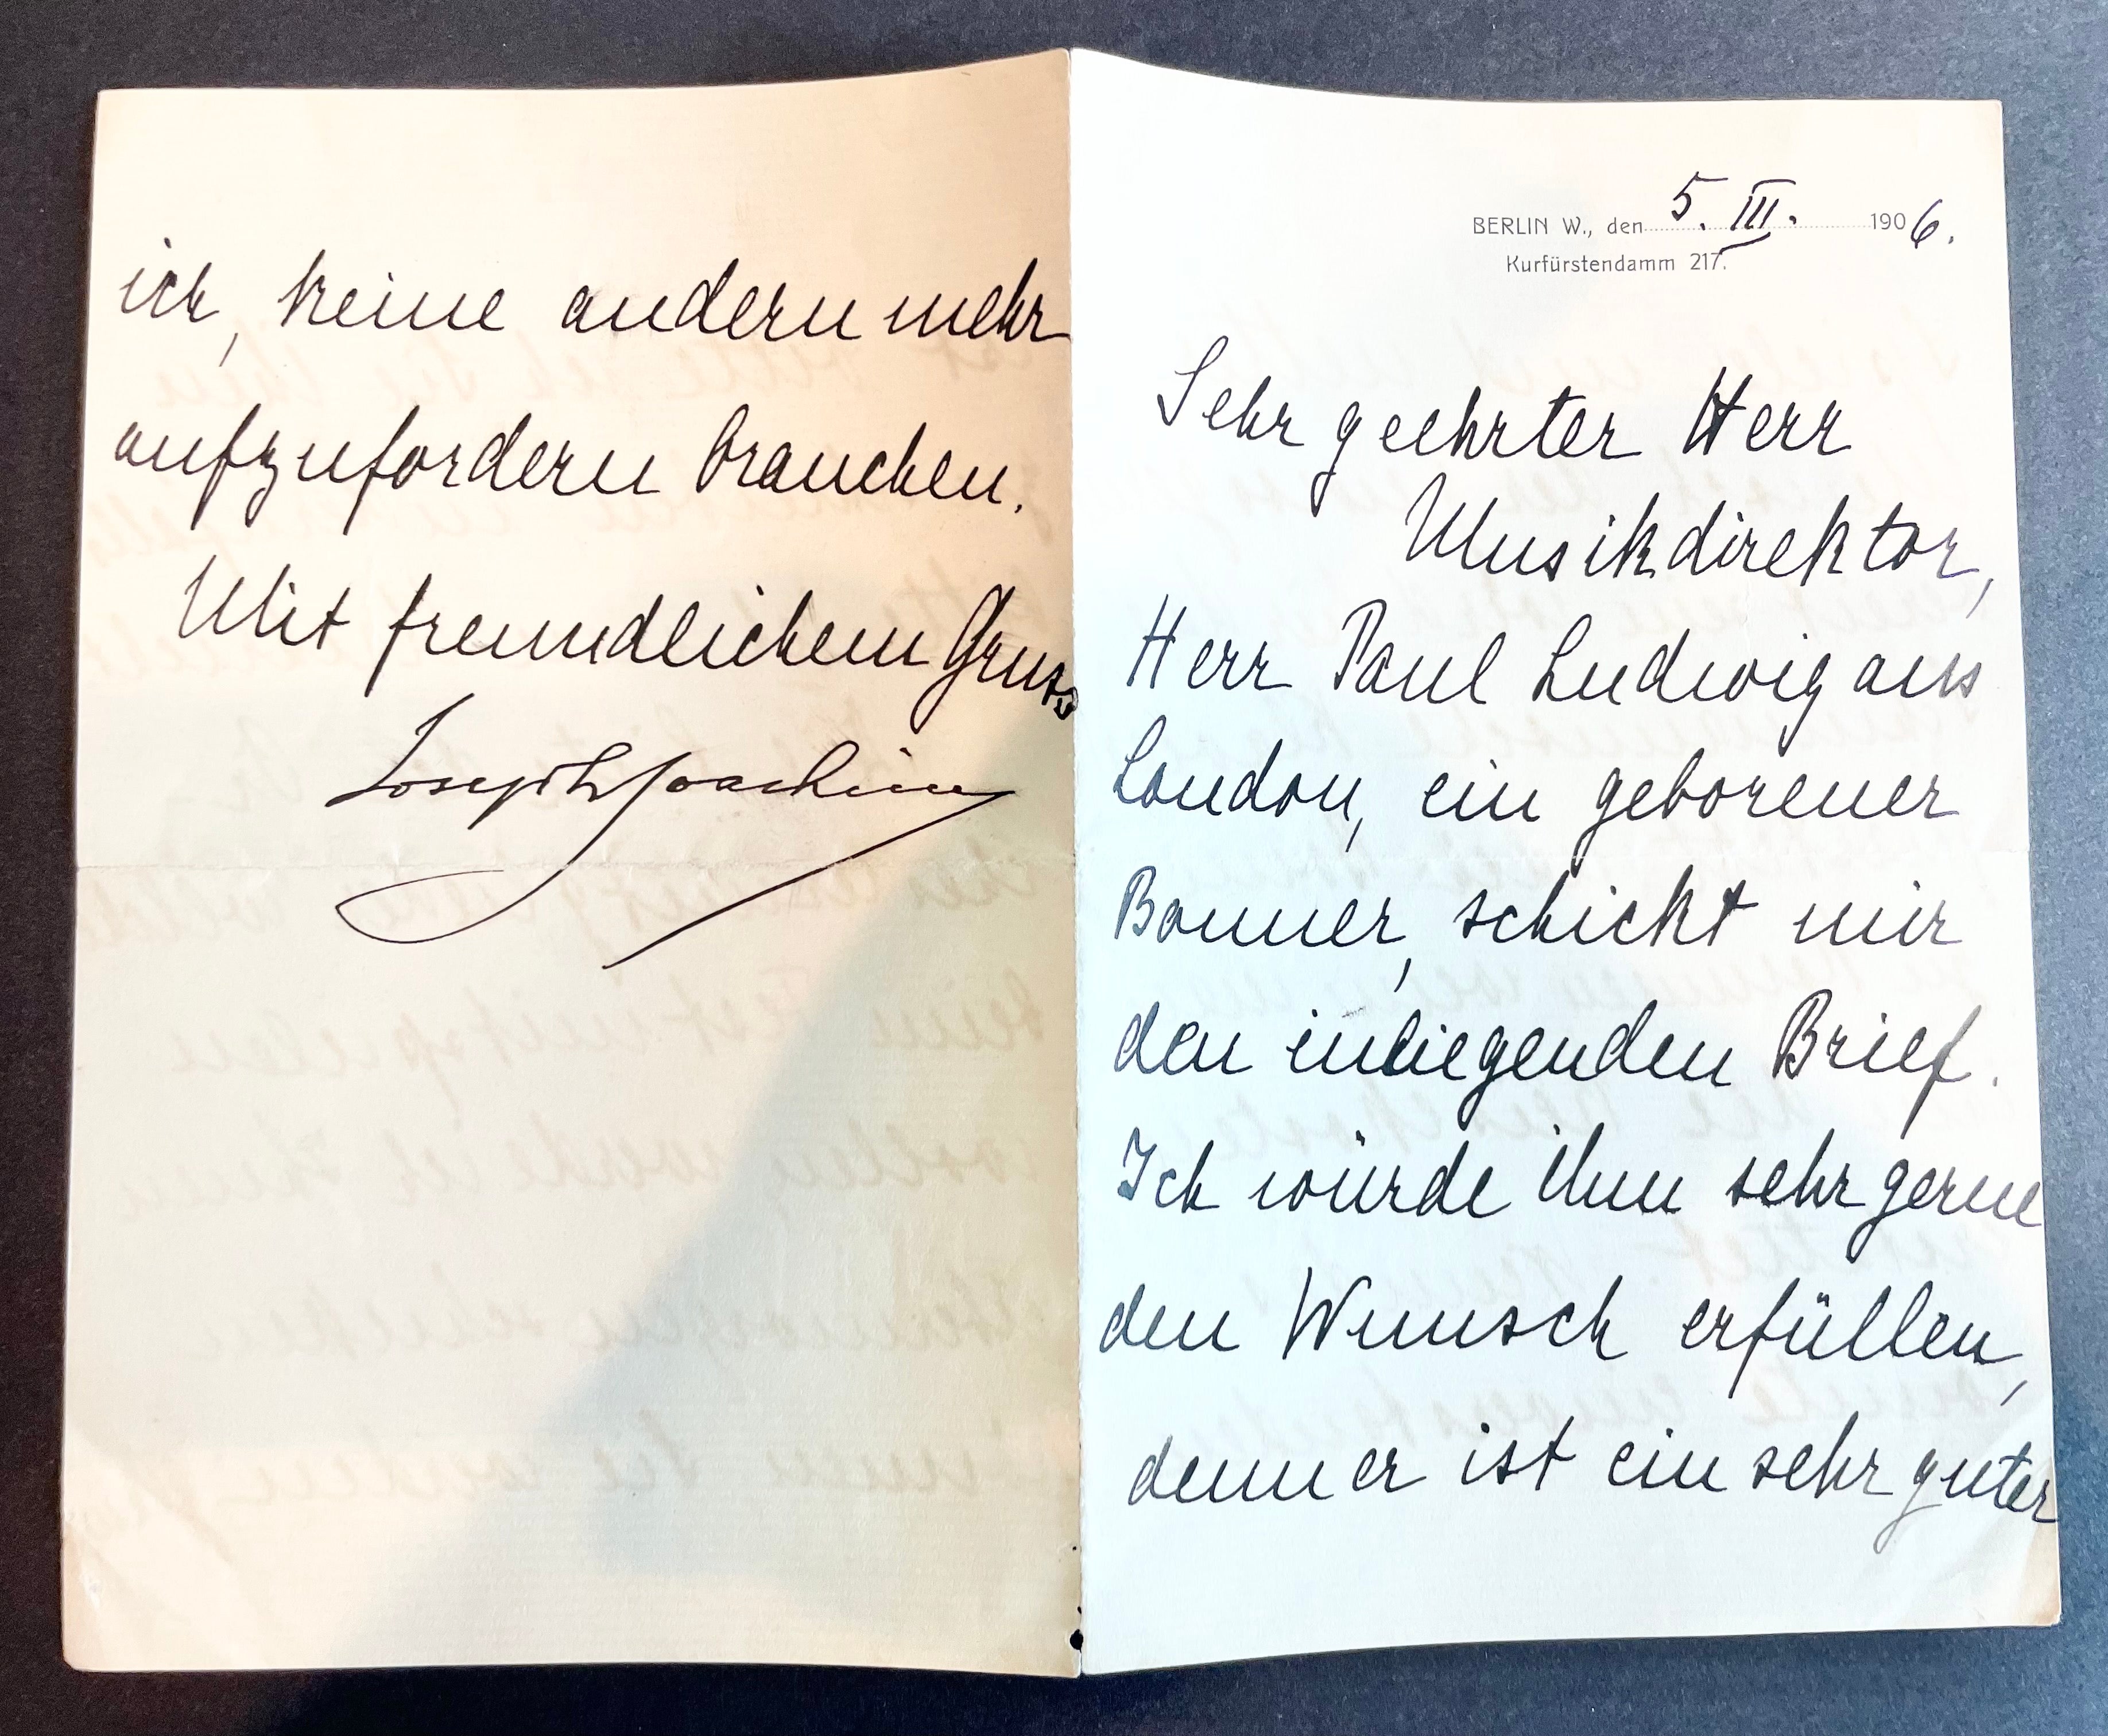 BERLIN W., den 5. III. 1906.
Kurfürstendamm 217.
Sehr geehrter Herr
Musikdirektor,
Herr Paul Ludwig aus
London, ein geborener
Bonner, schickt mir
den inliegenden Brief.
Ich würde ihm sehr gerne
den Wunsch erfüllen,
denn er ist ein sehr guter
ich, keine andern mehr
aufzufordern brauchen.
Mit freundlichem Gruss
Joseph Joachim